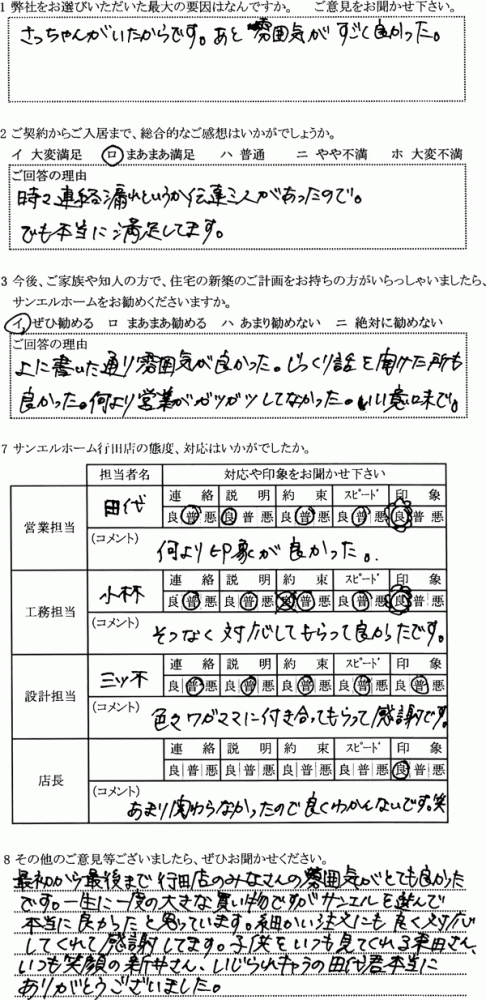 1 弊社をお選びいただいた最大の要因はなんですか。 ご意見をお聞かせ下さい。
さっちゃんがいたからです。あと雰囲気がすごく良かった。
2 ご契約からご入居まで、総合的なご感想はいかがでしょうか。
イ 大変満足 ロ まあまあ満足 ハ 普通 ニ やや不満 ホ 大変不満
ご回答の理由
時々連絡漏れというか伝達ミスがあったので。
でも本当に満足してます。
3 今後、ご家族や知人の方で、住宅の新築のご計画をお持ちの方がいらっしゃいましたら、
サンエルホームをお勧めくださいますか。
イ ぜひ勧める ロ まあまあ勧める ハ あまり勧めない ニ 絶対に勧めない
ご回答の理由
上に書いた通り雰囲気が良かった。じっくり話を聞けた所も
良かった。何より営業がガツガツしてなかった。いい意味で。
7 サンエルホーム行田店の態度、対応はいかがでしたか。
担当者名 対応や印象をお聞かせ下さい
営業担当 田代 連絡 説明 約束 スピード 印象
良 普 悪 良 普 悪 良 普 悪 良 普 悪 良 普 悪
(コメント) 何より印象が良かった。
工務担当 小林 連絡 説明 約束 スピード 印象
良 普 悪 良 普 悪 良 普 悪 良 普 悪 良 普 悪
(コメント) そつなく対応してもらって良かったです。
設計担当 三ッ木 連絡 説明 約束 スピード 印象
良 普 悪 良 普 悪 良 普 悪 良 普 悪 良 普 悪
(コメント) 色々ワガママに付き合ってもらって感謝です。
店長 連絡 説明 約束 スピード 印象
良 普 悪 良 普 悪 良 普 悪 良 普 悪 良 普 悪
(コメント) あまり関わらなかったので良くわかんないです。笑
8 その他のご意見等ございましたら、ぜひお聞かせください。
最初から最後まで行田店のみなさんの雰囲気がとても良かった
です。一生に一度の大きな買い物ですがサンエルを選んで
本当に良かったと思っています。細かい注文にも良く対応
してくれて感謝してます。子供をいつも見てくれる さん、
いつも笑顔の新井さん、いじられキャラの田代君本当に
ありがとうございました。